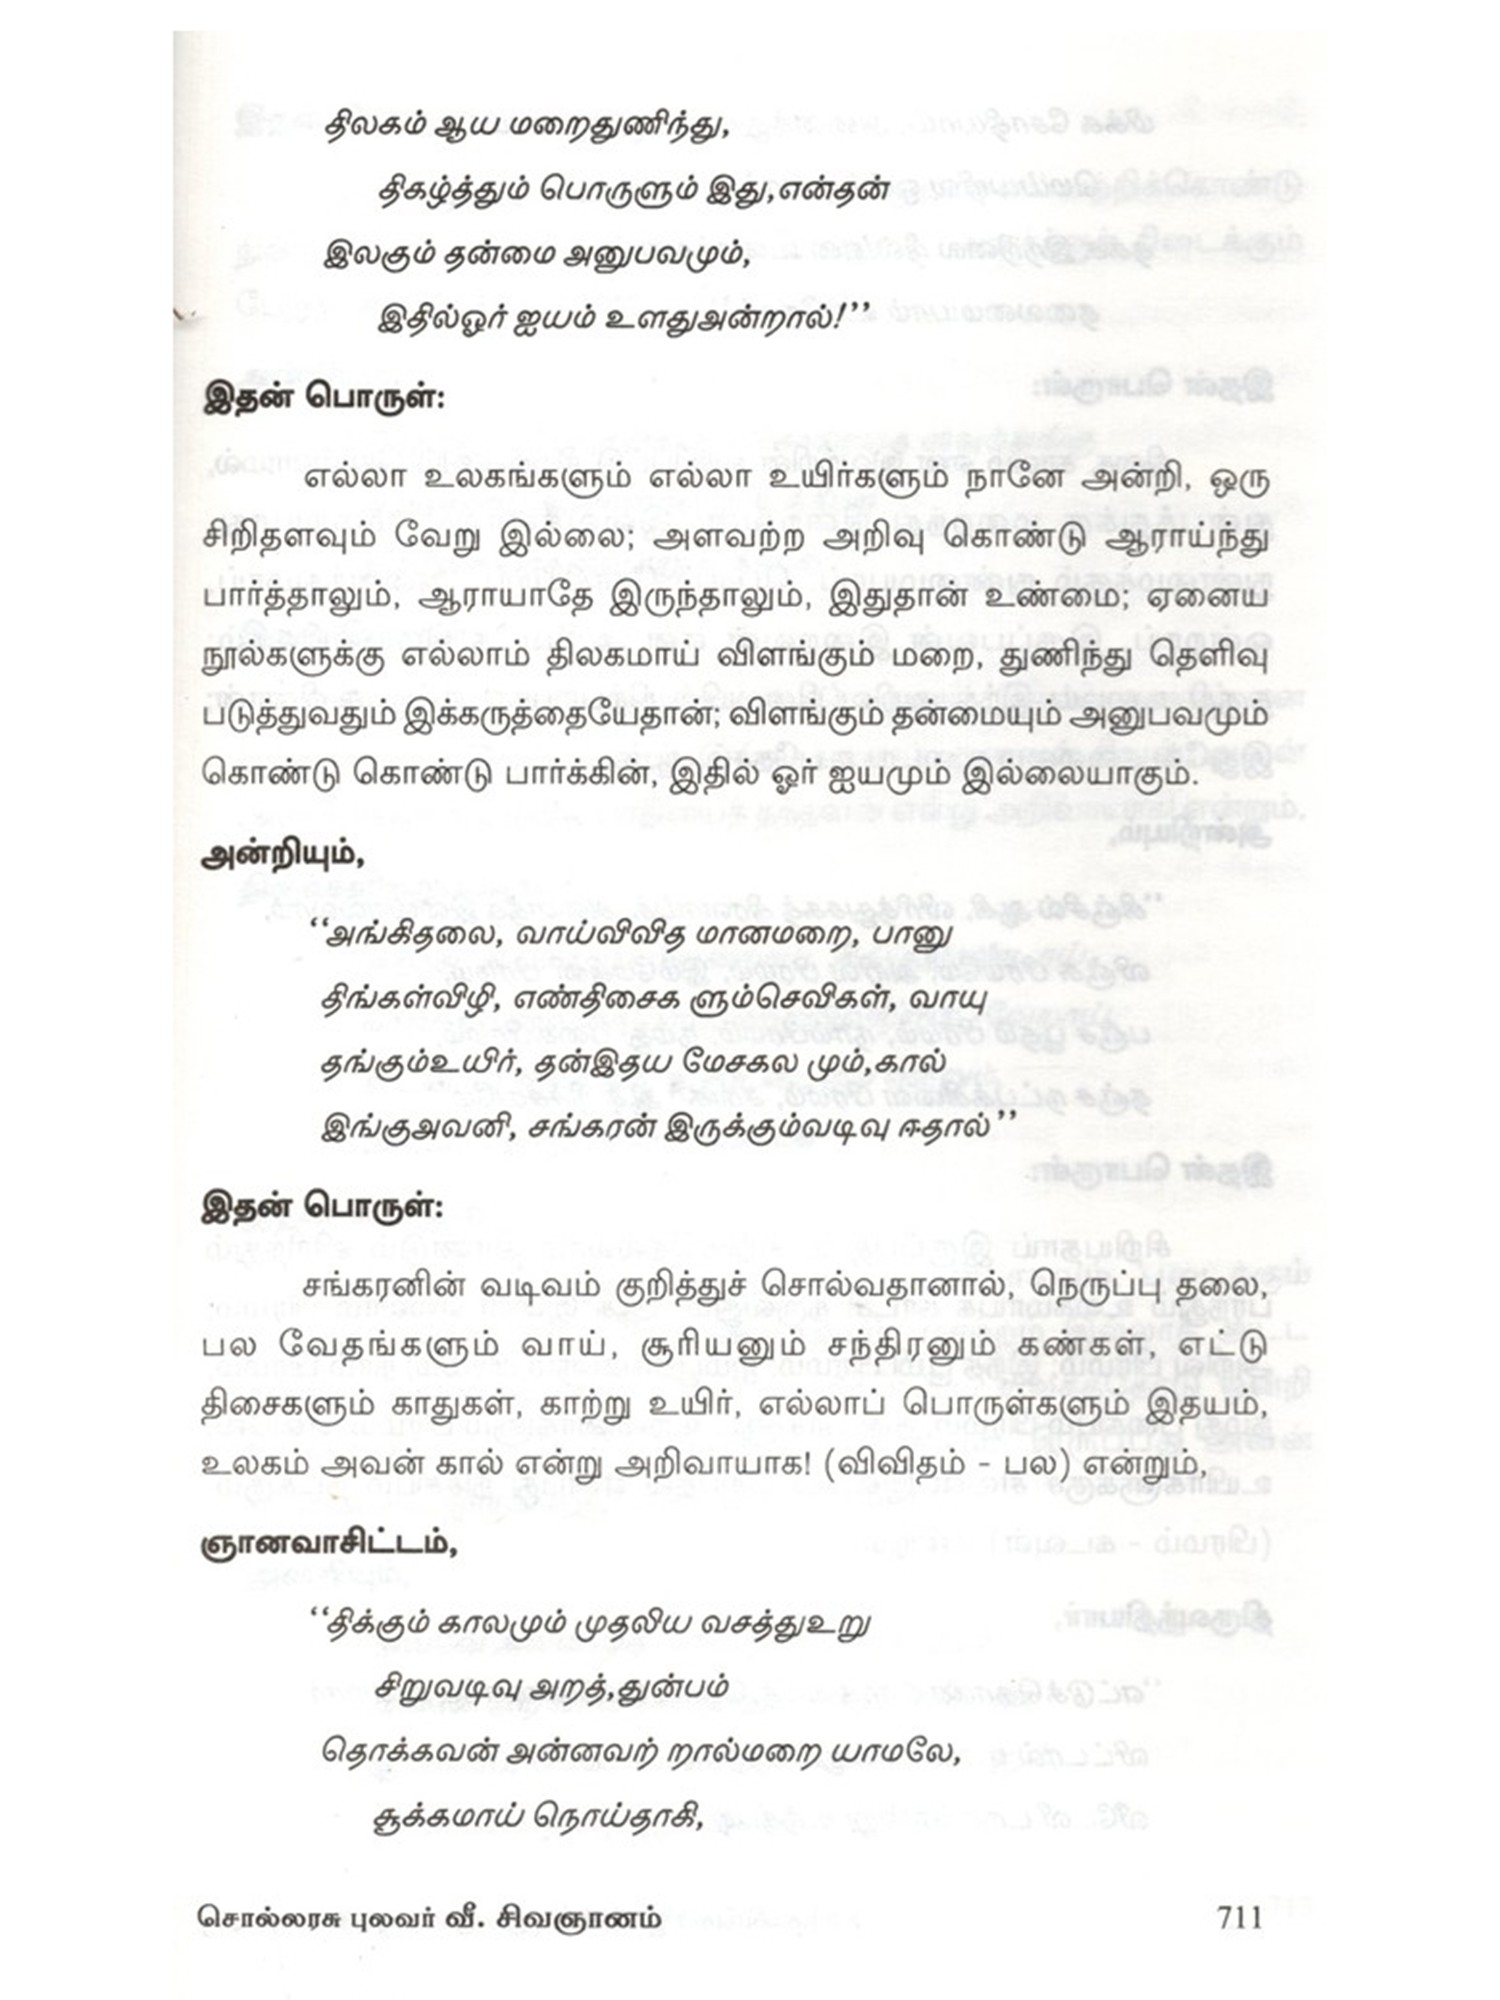 திலகம் ஆய மறைதுணிந்து,
திகழ்த்தும் பொருளும் இது,என்தன்
இலகும் தன்மை அனுபவமும்,
இதில்ஓர் ஐயம் உளதுஅன்றால்!’’
இதன் பொருள்:
எல்லா உலகங்களும் எல்லா உயிர்களும் நானே அன்றி, ஒரு
சிறிதளவும் வேறு இல்லை; அளவற்ற அறிவு கொண்டு ஆராய்ந்து
பார்த்தாலும், ஆராயாதே இருந்தாலும், இதுதான் உண்மை; ஏனைய
நூல்களுக்கு எல்லாம் திலகமாய் விளங்கும் மறை, துணிந்து தெளிவு
படுத்துவதும் இக்கருத்தையேதான்; விளங்கும் தன்மையும் அனுபவமும்
கொண்டு கொண்டு பார்க்கின், இதில் ஓர் ஐயமும் இல்லையாகும்.
அன்றியும்,
‘‘அங்கிதலை, வாய்விவித மானமறை, பானு
திங்கள்விழி, எண்திசைக ளும்செவிகள், வாயு
தங்கும்உயிர், தன்இதய மேசகல மும்,கால்
இங்குஅவனி, சங்கரன் இருக்கும்வடிவு ஈதால்’’
இதன் பொருள்:
சங்கரனின் வடிவம் குறித்துச் சொல்வதானால், நெருப்பு தலை,
பல வேதங்களும் வாய், சூரியனும் சந்திரனும் கண்கள், எட்டு
திசைகளும் காதுகள், காற்று உயிர், எல்லாப் பொருள்களும் இதயம்,
உலகம் அவன் கால் என்று அறிவாயாக! (விவிதம் - பல) என்றும்,
ஞானவாசிட்டம்,
‘‘திக்கும் காலமும் முதலிய வசத்துஉறு
சிறுவடிவு அறத்,துன்பம்
தொக்கவன் அன்னவற் றால்மறை யாமலே,
சூக்கமாய் நொய்தாகி,
சொல்லரசு புலவர் வீ. சிவஞானம்
711